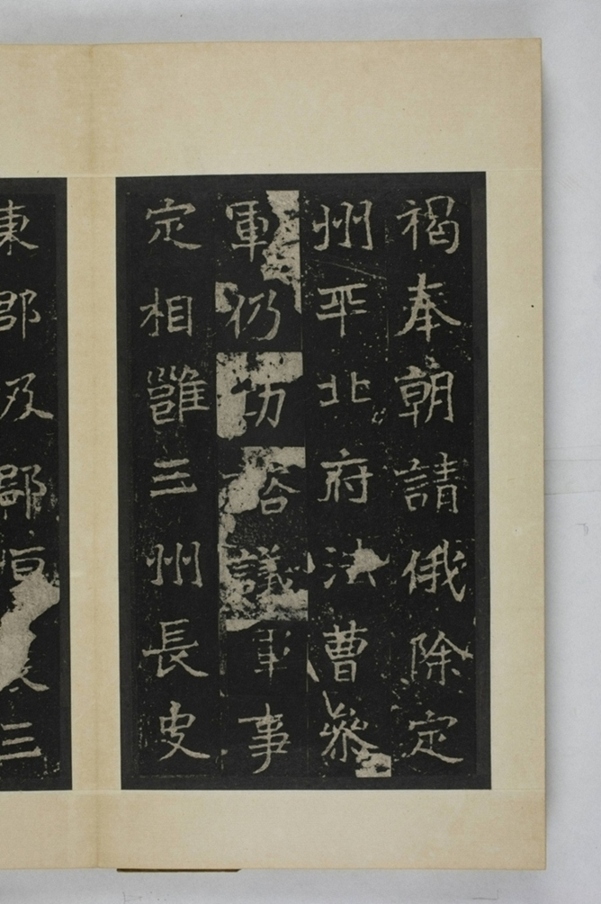 褐奉朝請俄除定
州平北府法曹參
軍仍諮議軍事
定相雝三州長史
東郡及郡恒三